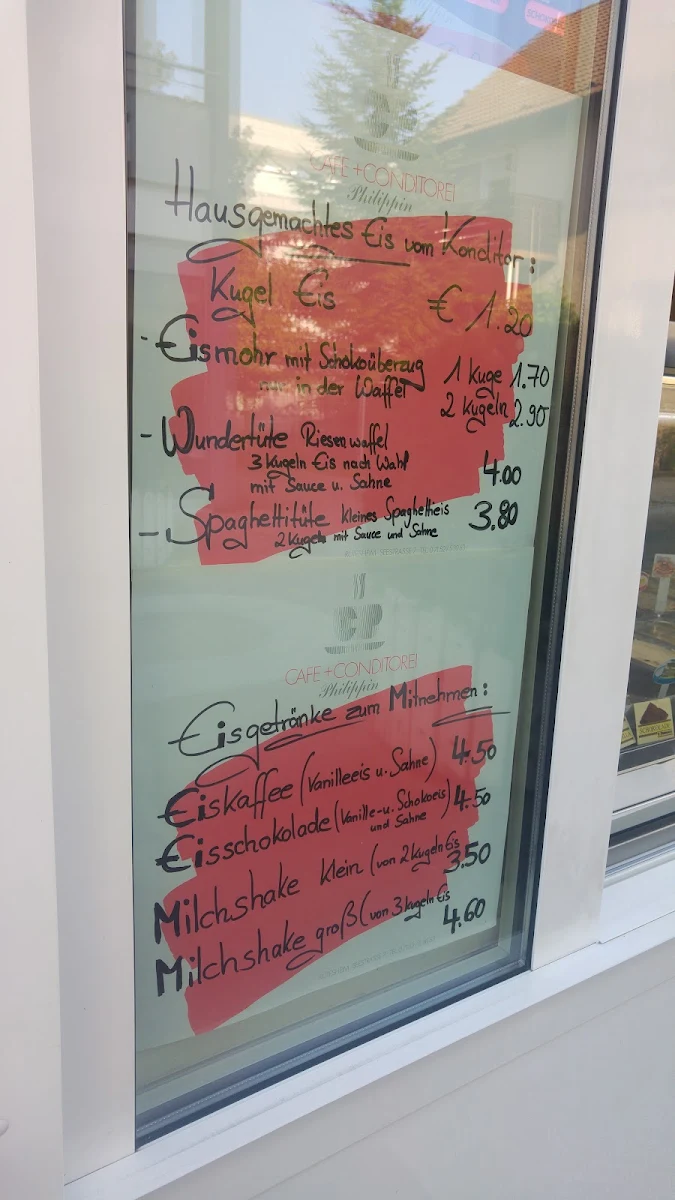 CAFE+CONDITOREI
Philippin
Hausgemachtes Eis vom Konditor:
Kugel Eis € 1.20
- Eismohr mit Schokoüberzug 1 Kugel 1.70
nur in der Waffel 2 Kugeln 2.90
- Wundertüte Riesenwaffel
3 Kugeln Eis nach Wahl
mit Sauce u. Sahne 4.00
- Spaghettitüte kleines Spaghettieis 3.80
2 Kugeln mit Sauce und Sahne
CP
CAFE+CONDITOREI
Philippin
Eisgetränke zum Mitnehmen:
Eiskaffee (Vanilleeis u. Sahne) 4.50
Eisschokolade (Vanille-u. Schokoeis) 4.50
und Sahne
Milchshake klein (von 2 Kugeln Eis 3.50
Milchshake groß (von 3 kugeln Eis 4.60